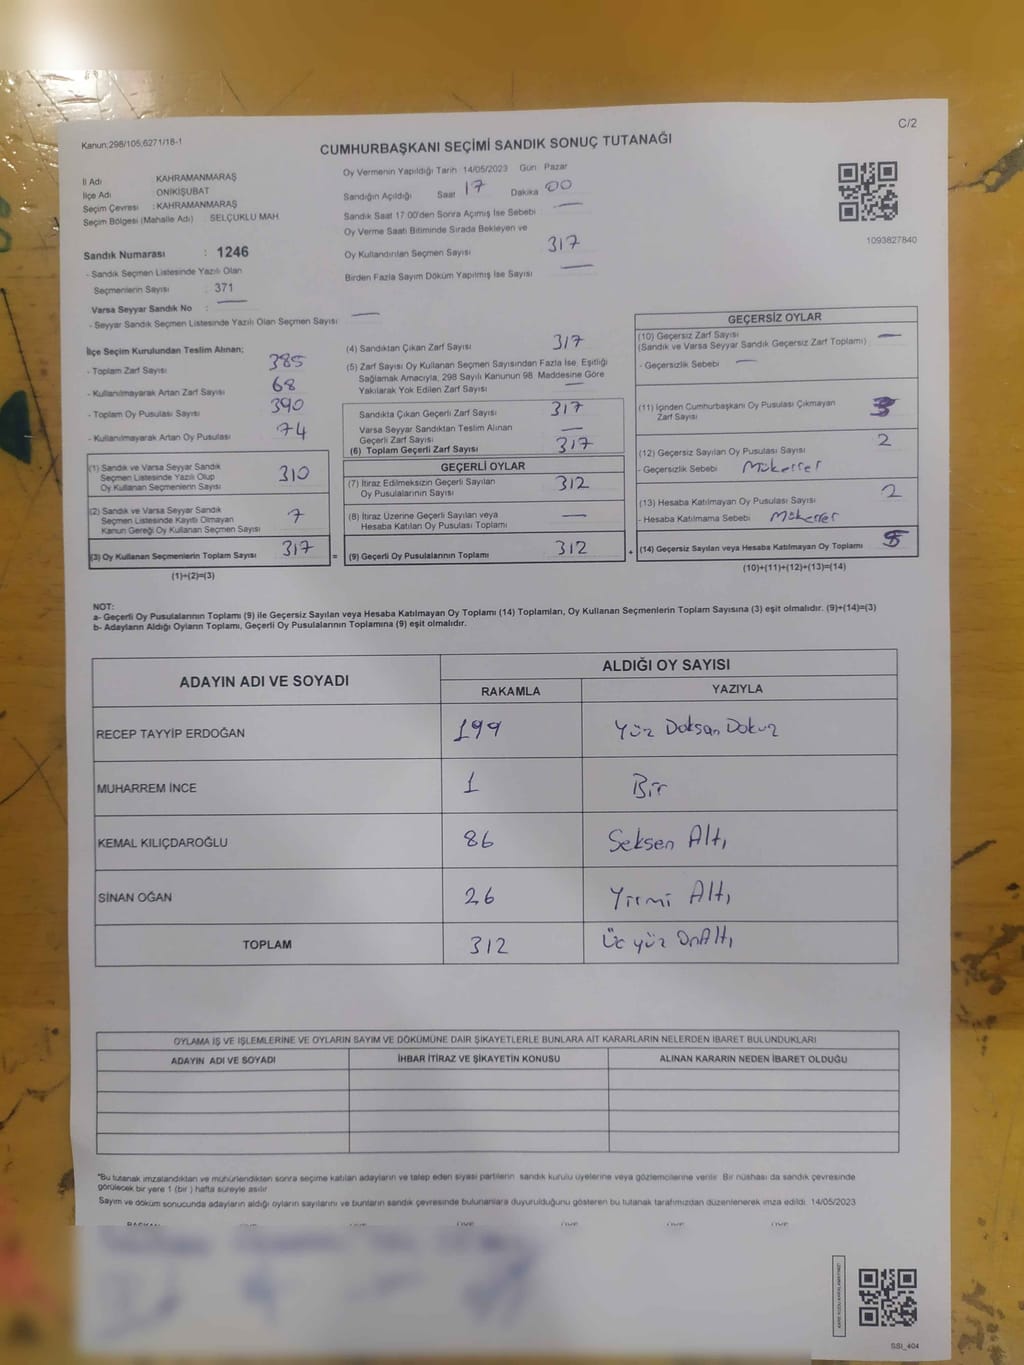 Kanun:298/105;6271/18-1
C/2
CUMHURBAŞKANI SEÇİMİ SANDIK SONUÇ TUTANAĞI
İl Adı KAHRAMANMARAŞ
İlçe Adı ONİKİŞUBAT
Seçim Çevresi : KAHRAMANMARAŞ
Seçim Bölgesi (Mahalle Adı) : SELÇUKLU MAH.
Sandık Numarası : 1246
- Sandık Seçmen Listesinde Yazılı Olan
Seçmenlerin Sayısı : 371
Varsa Seyyar Sandık No : —
- Seyyar Sandık Seçmen Listesinde Yazılı Olan Seçmen Sayısı : —
Oy Vermenin Yapıldığı Tarih 14/05/2023 Gün Pazar
Sandığın Açıldığı Saat 17 Dakika 00
Sandık Saat 17:00'den Sonra Açılmış İse Sebebi —
Oy Verme Saati Bitiminde Sırada Bekleyen ve
Oy Kullandırılan Seçmen Sayısı 317
Birden Fazla Sayım Döküm Yapılmış İse Sayısı —
1093827840
İlçe Seçim Kurulundan Teslim Alınan;
- Toplam Zarf Sayısı 385
- Kullanılmayarak Artan Zarf Sayısı 68
- Toplam Oy Pusulası Sayısı 390
- Kullanılmayarak Artan Oy Pusulası 74
(1) Sandık ve Varsa Seyyar Sandık
Seçmen Listesinde Yazılı Olup
Oy Kullanan Seçmenlerin Sayısı 310
(2) Sandık ve Varsa Seyyar Sandık
Seçmen Listesinde Kayıtlı Olmayan
Kanun Gereği Oy Kullanan Seçmen Sayısı 7
(3) Oy Kullanan Seçmenlerin Toplam Sayısı 317
(1)+(2)=(3)
(4) Sandıktan Çıkan Zarf Sayısı 317
(5) Zarf Sayısı Oy Kullanan Seçmen Sayısından Fazla İse, Eşitliği
Sağlamak Amacıyla, 298 Sayılı Kanunun 98. Maddesine Göre
Yakılarak Yok Edilen Zarf Sayısı —
Sandıkta Çıkan Geçerli Zarf Sayısı 317
Varsa Seyyar Sandıktan Teslim Alınan
Geçerli Zarf Sayısı —
(6) Toplam Geçerli Zarf Sayısı 317
GEÇERLİ OYLAR
(7) İtiraz Edilmeksizin Geçerli Sayılan
Oy Pusulalarının Sayısı 312
(8) İtiraz Üzerine Geçerli Sayılan veya
Hesaba Katılan Oy Pusulası Toplamı —
= (9) Geçerli Oy Pusulalarının Toplamı 312
GEÇERSİZ OYLAR
(10) Geçersiz Zarf Sayısı
(Sandık ve Varsa Seyyar Sandık Geçersiz Zarf Toplamı) —
- Geçersizlik Sebebi —
(11) İçinden Cumhurbaşkanı Oy Pusulası Çıkmayan
Zarf Sayısı 3
(12) Geçersiz Sayılan Oy Pusulası Sayısı 2
- Geçersizlik Sebebi Mükerrer
(13) Hesaba Katılmayan Oy Pusulası Sayısı 2
- Hesaba Katılmama Sebebi Mükerrer
+ (14) Geçersiz Sayılan veya Hesaba Katılmayan Oy Toplamı 5
(10)+(11)+(12)+(13)=(14)
NOT:
a- Geçerli Oy Pusulalarının Toplamı (9) ile Geçersiz Sayılan veya Hesaba Katılmayan Oy Toplamı (14) Toplamları, Oy Kullanan Seçmenlerin Toplam Sayısına (3) eşit olmalıdır. (9)+(14)=(3)
b- Adayların Aldığı Oyların Toplamı, Geçerli Oy Pusulalarının Toplamına (9) eşit olmalıdır.
ADAYIN ADI VE SOYADI
ALDIĞI OY SAYISI
RAKAMLA YAZIYLA
RECEP TAYYİP ERDOĞAN 199 Yüz Doksan Dokuz
MUHARREM İNCE 1 Bir
KEMAL KILIÇDAROĞLU 86 Seksen Altı
SİNAN OĞAN 26 Yirmi Altı
TOPLAM 312 Üç yüz OnAltı
OYLAMA İŞ VE İŞLEMLERİNE VE OYLARIN SAYIM VE DÖKÜMÜNE DAİR ŞİKAYETLERLE BUNLARA AİT KARARLARIN NELERDEN İBARET BULUNDUKLARI
ADAYIN ADI VE SOYADI İHBAR İTİRAZ VE ŞİKAYETİN KONUSU ALINAN KARARIN NEDEN İBARET OLDUĞU
*Bu tutanak imzalandıktan ve mühürlendikten sonra seçime katılan adayların ve talep eden siyasi partilerin sandık kurulu üyelerine veya gözlemcilerine verilir. Bir nüshası da sandık çevresinde
görülecek bir yere 1 (bir) hafta süreyle asılır.
Sayım ve döküm sonucunda adayların aldığı oyların sayılarını ve bunların sandık çevresinde bulunanlara duyurulduğunu gösteren bu tutanak tarafımızdan düzenlenerek imza edildi. 14/05/2023
SSI_404